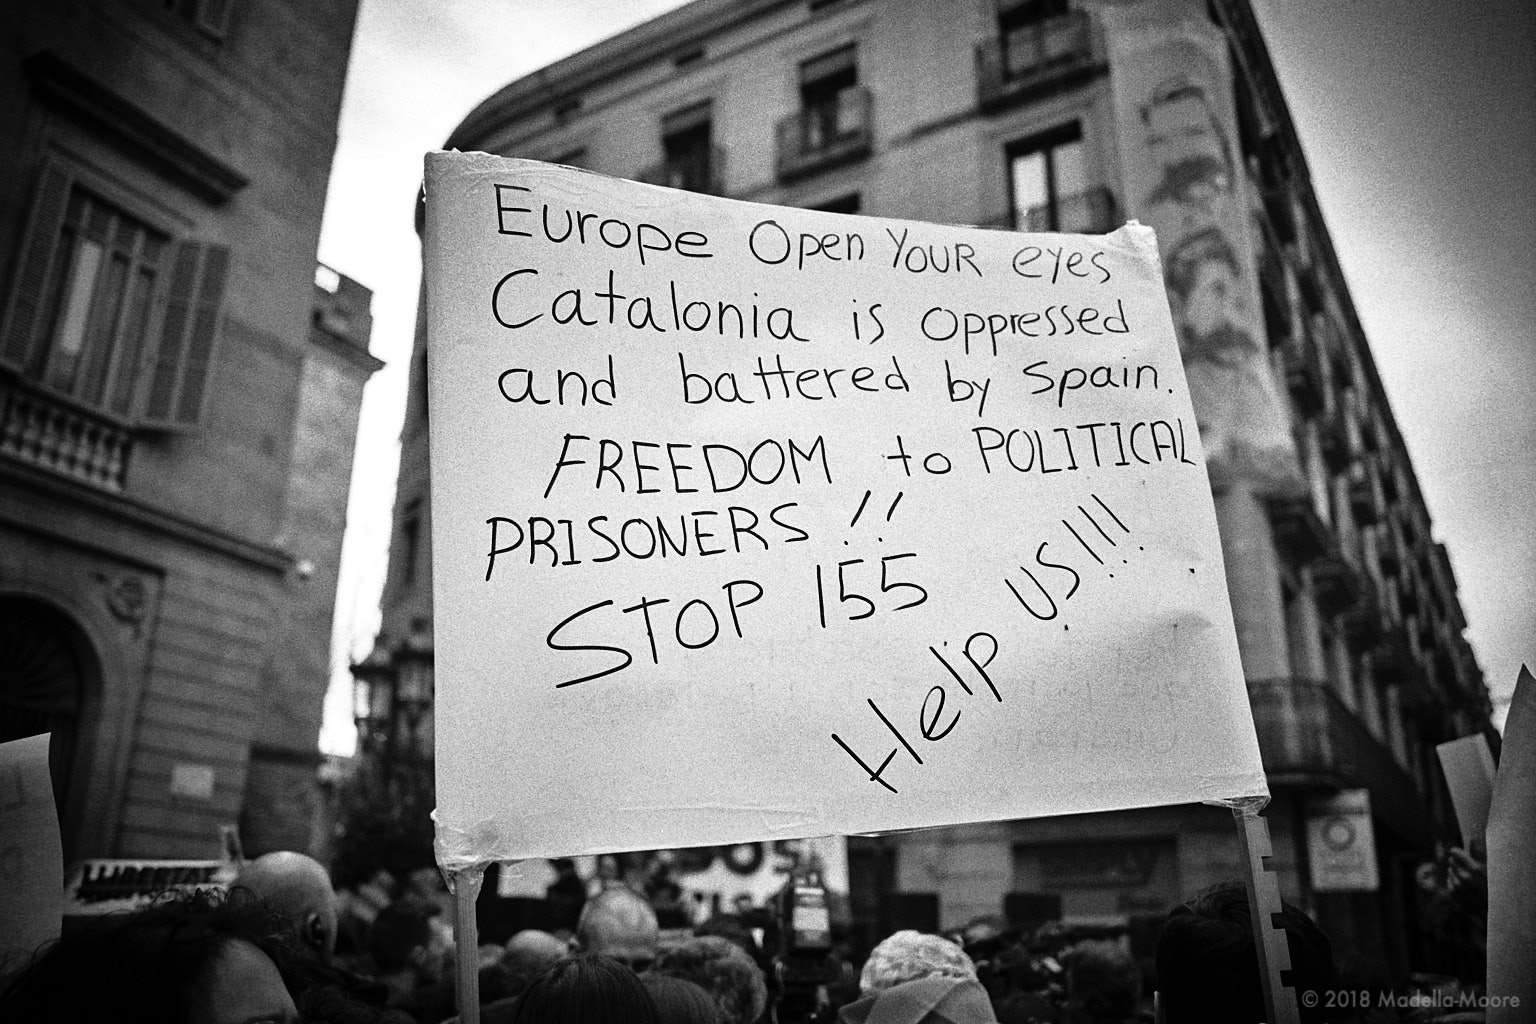 Europe Open YOUR eyes
Catalonia is oppressed
and battered by Spain.
FREEDOM to POLITICAL
PRISONERS!!
STOP 155
Help US!!!
LLIBERTAT
© 2018 Madella-Moore